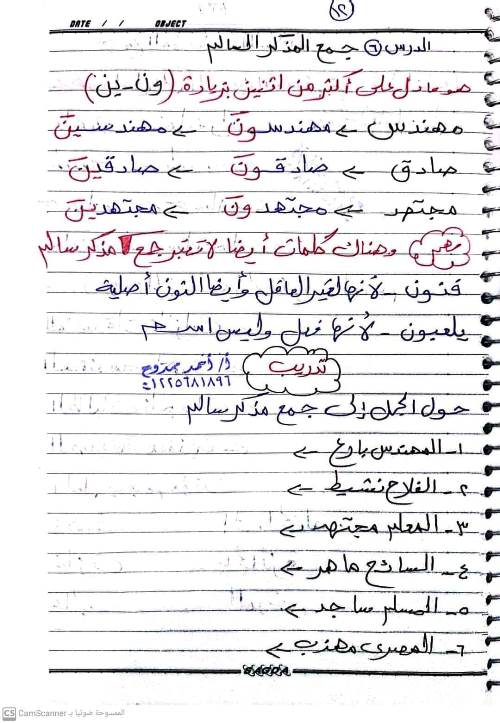 ١٢
DATE / / OBJECT
الدرس ٦ جمع المذكر السالم
هو ما دل على أكثر من اثنين بزيادة (ون - ين)
مهندس ← مهندسونَ ← مهندسينَ
صادق ← صادقونَ ← صادقينَ
مجتهد ← مجتهدونَ ← مجتهدينَ
مهم وهناك كلمات أيضا لا تعتبر جمع مذكر سالم
فنون - لأنها لغير العاقل وأيضا النون أصلية
يلعبون - لأنها فعل وليس اسم
تدريب أ/ أحمد ممدوح
حول الجمل إلى جمع مذكر سالم
١- المهندس بارع ←
٢- الفلاح نشيط ←
٣- المعلم مجتهد ←
٤- السائح ماهر ←
٥- المسلم ساجد ←
٦- المصرى مهذب ←
CS CamScanner الممسوحة ضوئيا بـ